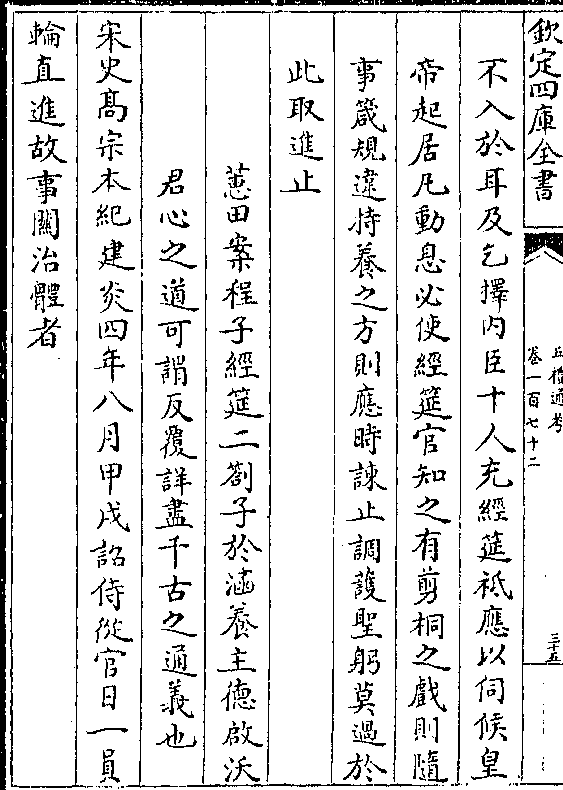 欽定四庫全書
五禮通考
卷一百七十二
三十五
不入於耳及乞擇内臣十人充經筵祗應以伺候皇
帝起居凡動息必使經筵官知之有剪桐之戲則隨
事箴規違持養之方則應時諫止調護聖躬莫過於
此取進止
蕙田案程子經筵二劄子於涵養主德啟沃
君心之道可謂反覆詳盡千古之通義也
宋史髙宗本紀建炎四年八月甲戌詔侍從官日一員
輪直進故事關治體者